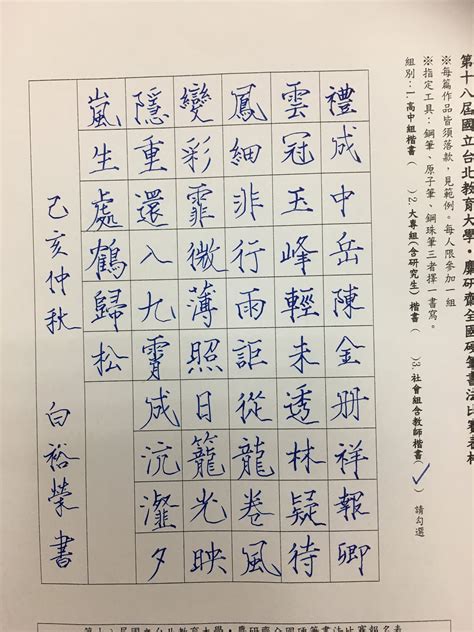 第十八屆國立台北教育大學‧麐研齋全國硬筆書法比賽表格
※每篇作品皆須落款,見範例。每人限參加一組
※指定工具:鋼筆、原子筆、鋼珠筆三者擇一書寫。
組別:1.高中組楷書( )2.大專組(含研究生)楷書( )3.社會組含教師楷書(✓) 請勾選
禮成中岳陳金冊祥報卿
雲冠玉峰輕未透林疑待
鳳細非行雨詎從龍卷風
變彩霏微薄照日籠光映
隱重還入九霄成沆瀣夕
嵐生處鶴歸松
己亥仲秋 白裕榮書